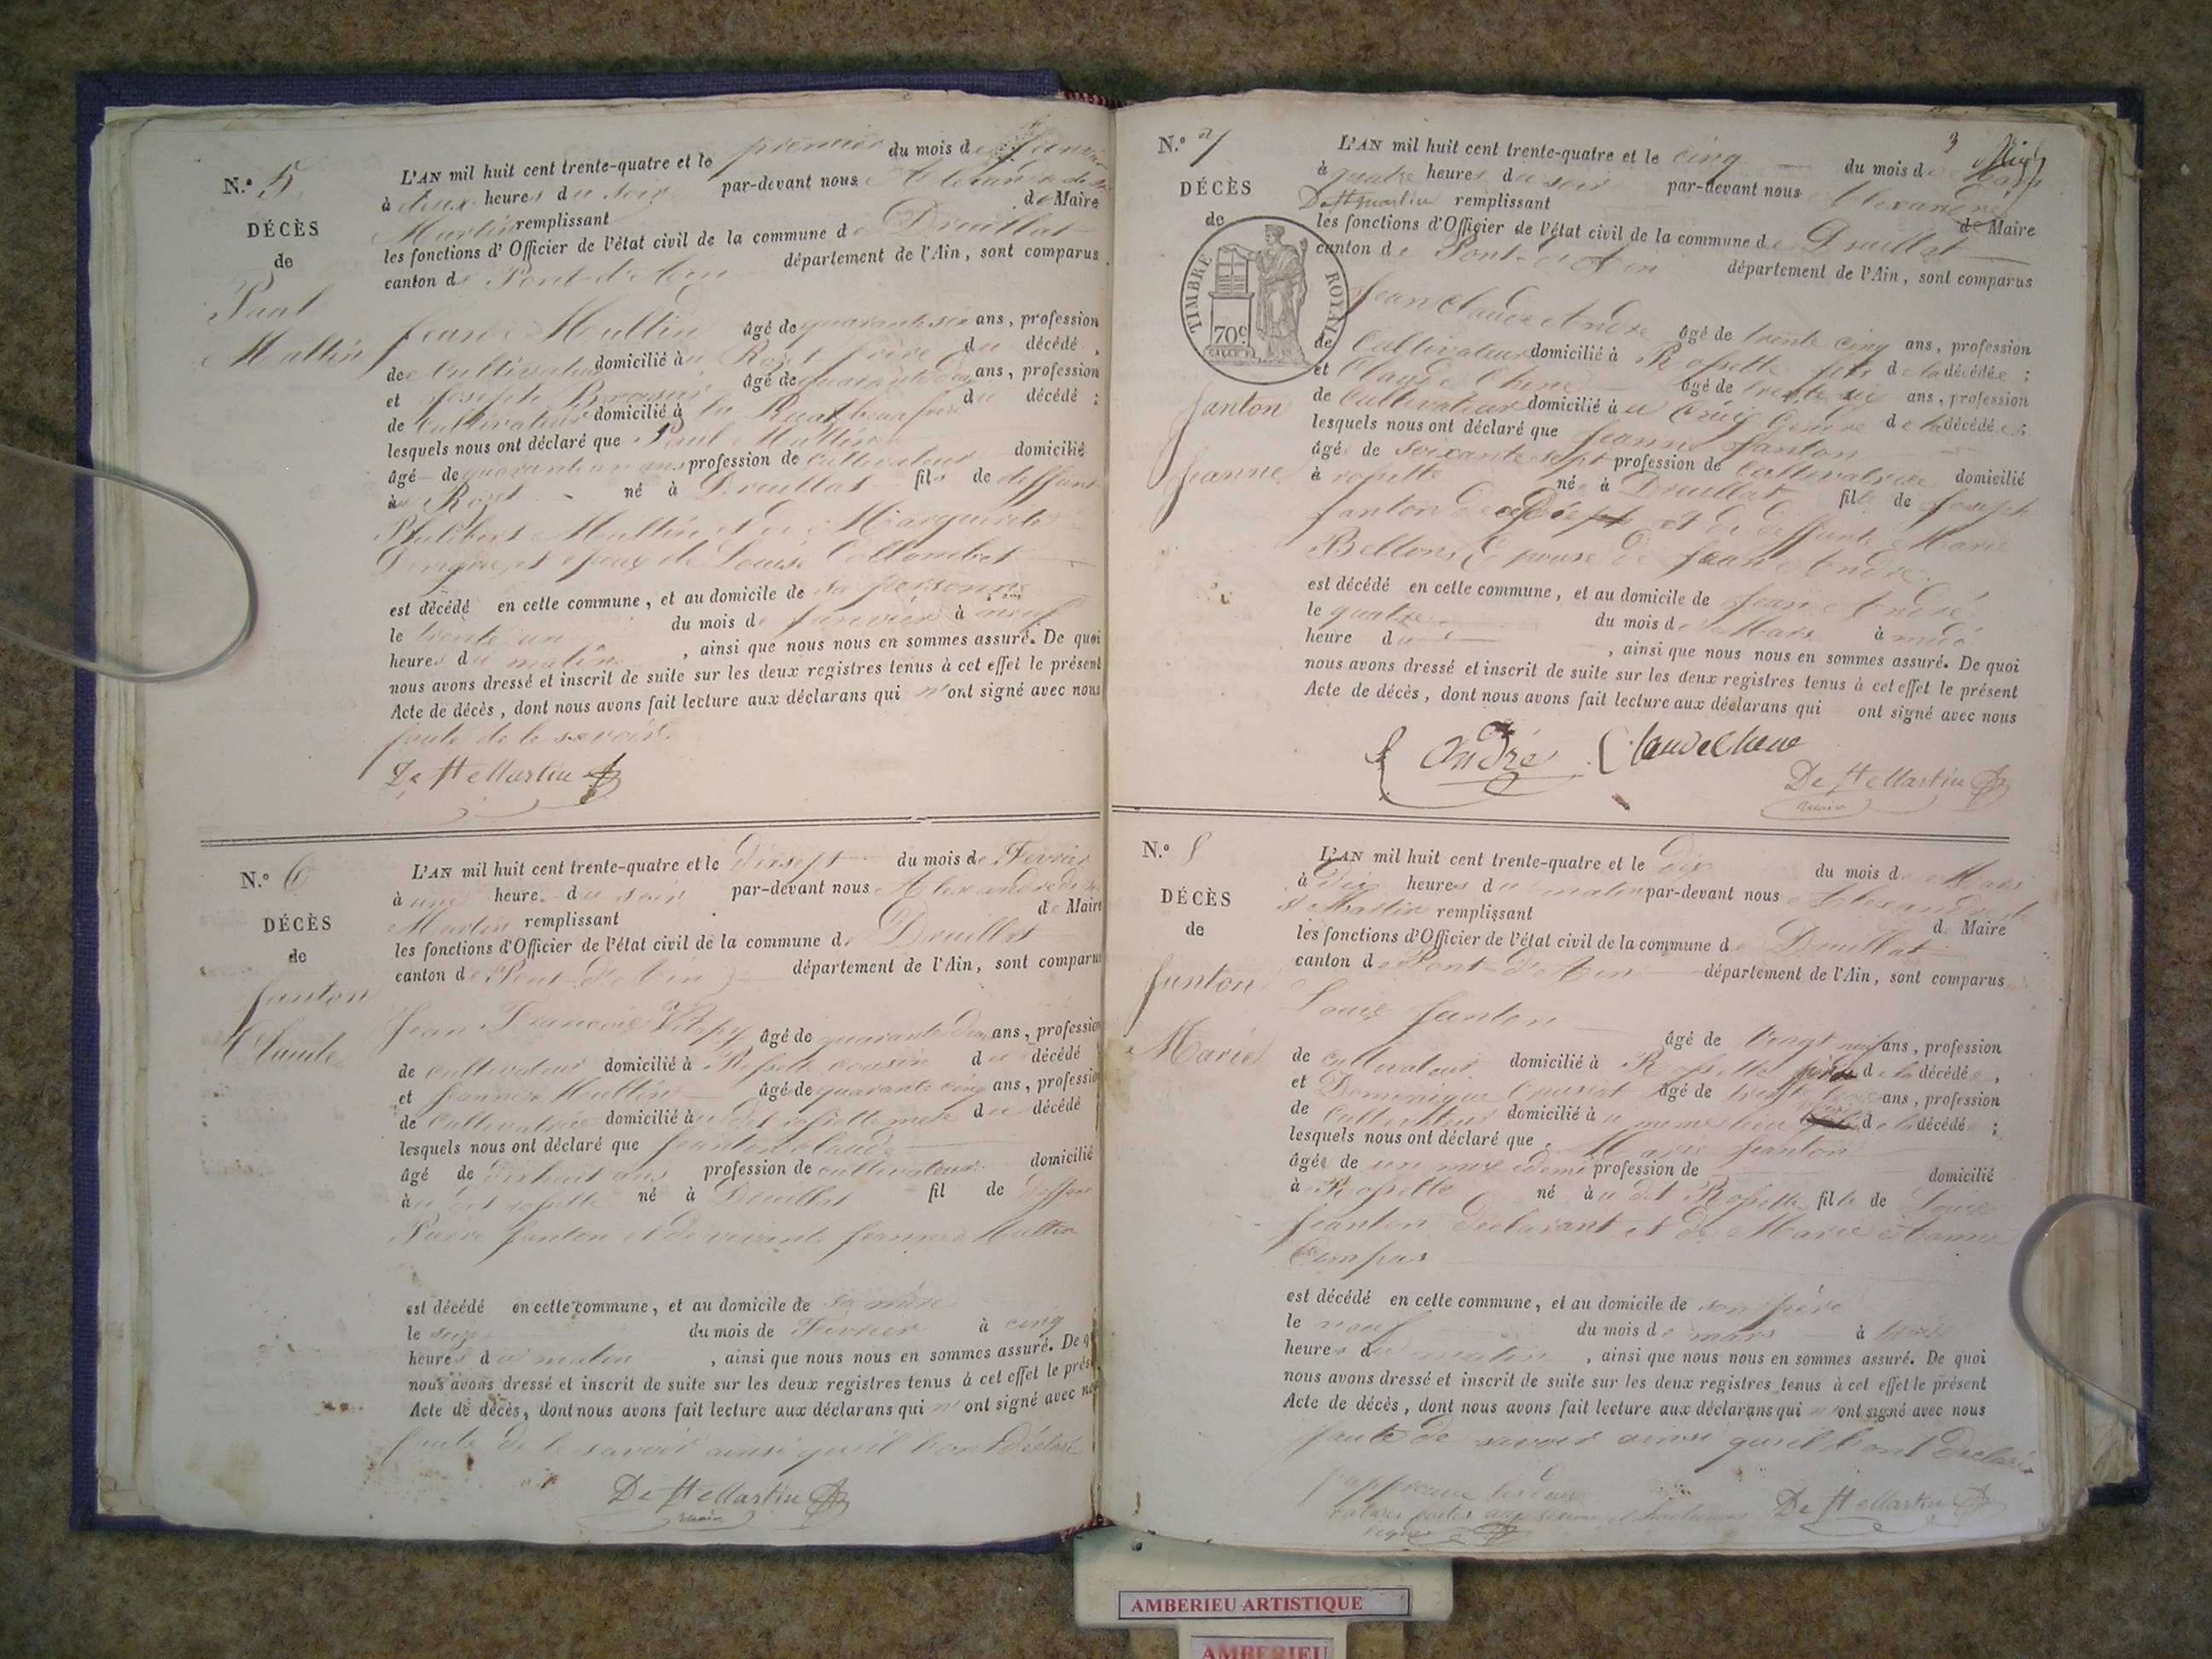 N.º 5
DÉCÈS
de
Paul
Mattin
L'AN mil huit cent trente-quatre et le premier du mois de
à deux heures du soir par-devant nous Alexandre de
Martin remplissant de Maire
les fonctions d'Officier de l'état civil de la commune de Druillat
canton de Pont-d'Ain département de l'Ain, sont comparus
Jean Mattin âgé de quarante six ans, profession
de Cultivateur domicilié au frère du décédé,
et Joseph âgé de quarante ans, profession
de Cultivateur domicilié à du décédé ;
lesquels nous ont déclaré que Paul Mattin
âgé de profession de Cultivateur domicilié
à né à Druillat fils de deffunt
Philibert Mattin et de Marguerite
et epoux de Louise Collombet
est décédé en cette commune, et au domicile de sa personne
le trente un du mois de Janvier à neuf
heures du matin, ainsi que nous nous en sommes assuré. De quoi
nous avons dressé et inscrit de suite sur les deux registres tenus à cet effet le présent
Acte de décès, dont nous avons fait lecture aux déclarans qui n'ont signé avec nous
faute de le savoir.
De St Martin
N.º 6
DÉCÈS
de
Janton
Claude
L'AN mil huit cent trente-quatre et le dixsept du mois de Fevrier
à une heure du soir par-devant nous Alexandre de
Martin remplissant de Maire
les fonctions d'Officier de l'état civil de la commune de Druillat
canton de Pont-d'Ain département de l'Ain, sont comparus
Jean François âgé de quarante ans, profession
de cultivateur domicilié à Rossette cousin du décédé
et Jeanne Mattin âgé de quarante cinq ans, profession
de Cultivatrice domicilié au dit rossette mère du décédé
lesquels nous ont déclaré que Janton Claude
âgé de dixhuit ans profession de cultivateur domicilié
au dit rossette né à Druillat fil de
Janton et de vivante Jeanne Mattin
est décédé en cette commune, et au domicile de sa mère
le seize du mois de Fevrier à cinq
heures du matin, ainsi que nous nous en sommes assuré. De
nous avons dressé et inscrit de suite sur les deux registres tenus à cet effet le
Acte de décès, dont nous avons fait lecture aux déclarans qui n'ont signé avec
faute de le savoir ainsi qu'il l'ont déclaré
De St Martin
maire
N.º 7
DÉCÈS
de
TIMBRE ROYAL
70c
Janton
Jeanne
3
L'AN mil huit cent trente-quatre et le cinq du mois de Mars
à quatre heures du soir par-devant nous Alexandre
De St Martin remplissant de Maire
les fonctions d'Officier de l'état civil de la commune de Druillat
canton de Pont-d'Ain département de l'Ain, sont comparus
Jean Claude Andre âgé de trente cinq ans, profession
de Cultivateur domicilié à Rossette fils de la décédée ;
et Claude Chene âgé de trente six ans, profession
de Cultivateur domicilié au Gendre de la décédée ;
lesquels nous ont déclaré que Jeanne Janton
âgé de soixante sept profession de cultivatrice domicilié
à rossette née à Druillat fille de Joseph
Janton et de deffunte Marie
Bellon Epouse de Jean André.
est décédé en cette commune, et au domicile de Jean André
le quatre du mois de Mars à midi
heure du, ainsi que nous nous en sommes assuré. De quoi
nous avons dressé et inscrit de suite sur les deux registres tenus à cet effet le présent
Acte de décès, dont nous avons fait lecture aux déclarans qui ont signé avec nous
André Claude Chene
De St Martin
maire
N.º 8
DÉCÈS
de
Janton
Marie
L'AN mil huit cent trente-quatre et le dix du mois de Mars
à Dix heures du matin par-devant nous Alexandre de
St Martin remplissant de Maire
les fonctions d'Officier de l'état civil de la commune de Druillat
canton de Pont-d'Ain département de l'Ain, sont comparus
Louis Janton âgé de vingt neuf ans, profession
de cultivateur domicilié à Rossette de la décédée,
et Dominique âgé de ans, profession
de Cultivateur domicilié au même lieu de la décédée ;
lesquels nous ont déclaré que Marie Janton
âgée de un mois et demi profession de domicilié
à Rossette né au dit Rossette fille de Louis
Janton declarant et de Marie
est décédé en cette commune, et au domicile de son père
le neuf du mois de mars à trois
heures du matin, ainsi que nous nous en sommes assuré. De quoi
nous avons dressé et inscrit de suite sur les deux registres tenus à cet effet le présent
Acte de décès, dont nous avons fait lecture aux déclarans qui n'ont signé avec nous
faute de savoir ainsi qu'il l'ont declaré
De St Martin
AMBERIEU ARTISTIQUE
AMBERIEU